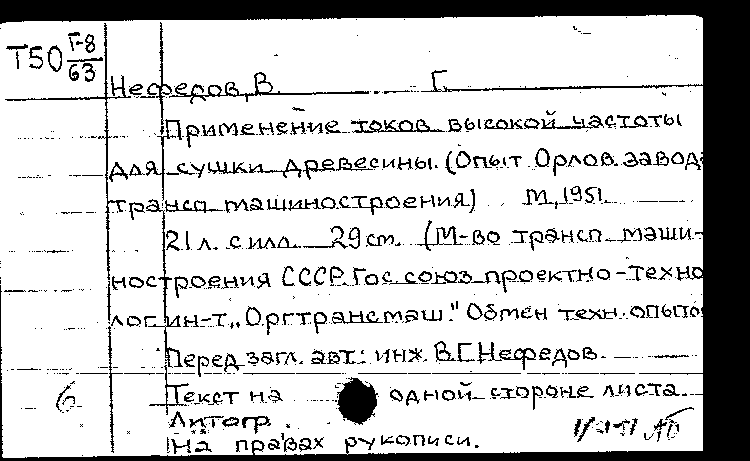 Т50 Г-8/63
Нефедов, В. Г.
Применение токов высокой частоты
для сушки древесины. (Опыт Орлов. завода
трансп. машиностроения) М, 1951.
21 л. с илл. 29 см. (М-во трансп. маши-
ностроения СССР. Гос. союз. проектно-техно
лог. ин-т „Оргтрансмаш." Обмен техн. опыто
Перед загл. авт.: инж. В.Г. Нефедов.
6 Текст на одной стороне листа.
Литогр.
На правах рукописи.